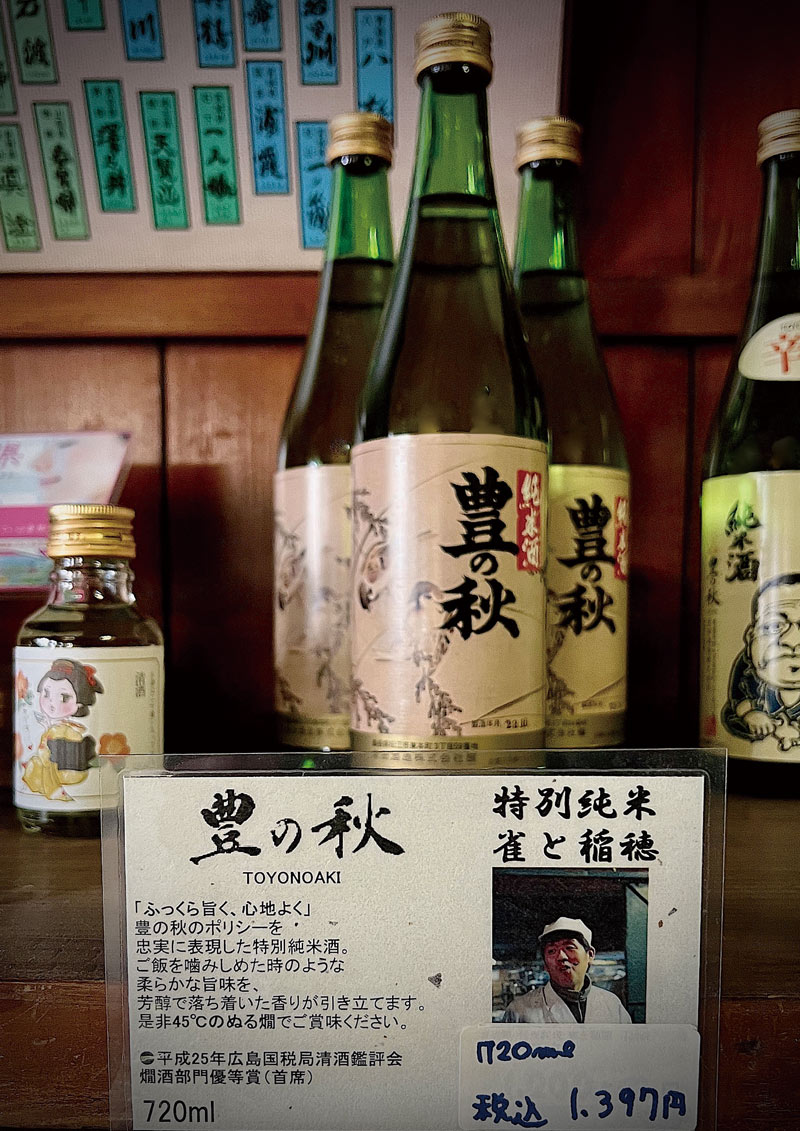 川
鶴
八
浦霞
一人娘
天覧山
真澄
豊の秋
純米酒
豊の秋
純米酒
豊の秋
辛
純米酒
豊の秋
清酒
豊の秋
TOYONOAKI
特別純米
雀と稲穂
「ふっくら旨く、心地よく」
豊の秋のポリシーを
忠実に表現した特別純米酒。
ご飯を噛みしめた時のような
柔らかな旨味を、
芳醇で落ち着いた香りが引き立てます。
是非45℃のぬる燗でご賞味ください。
平成25年広島国税局清酒鑑評会
燗酒部門優等賞(首席)
720ml
720ml
税込 1,397円